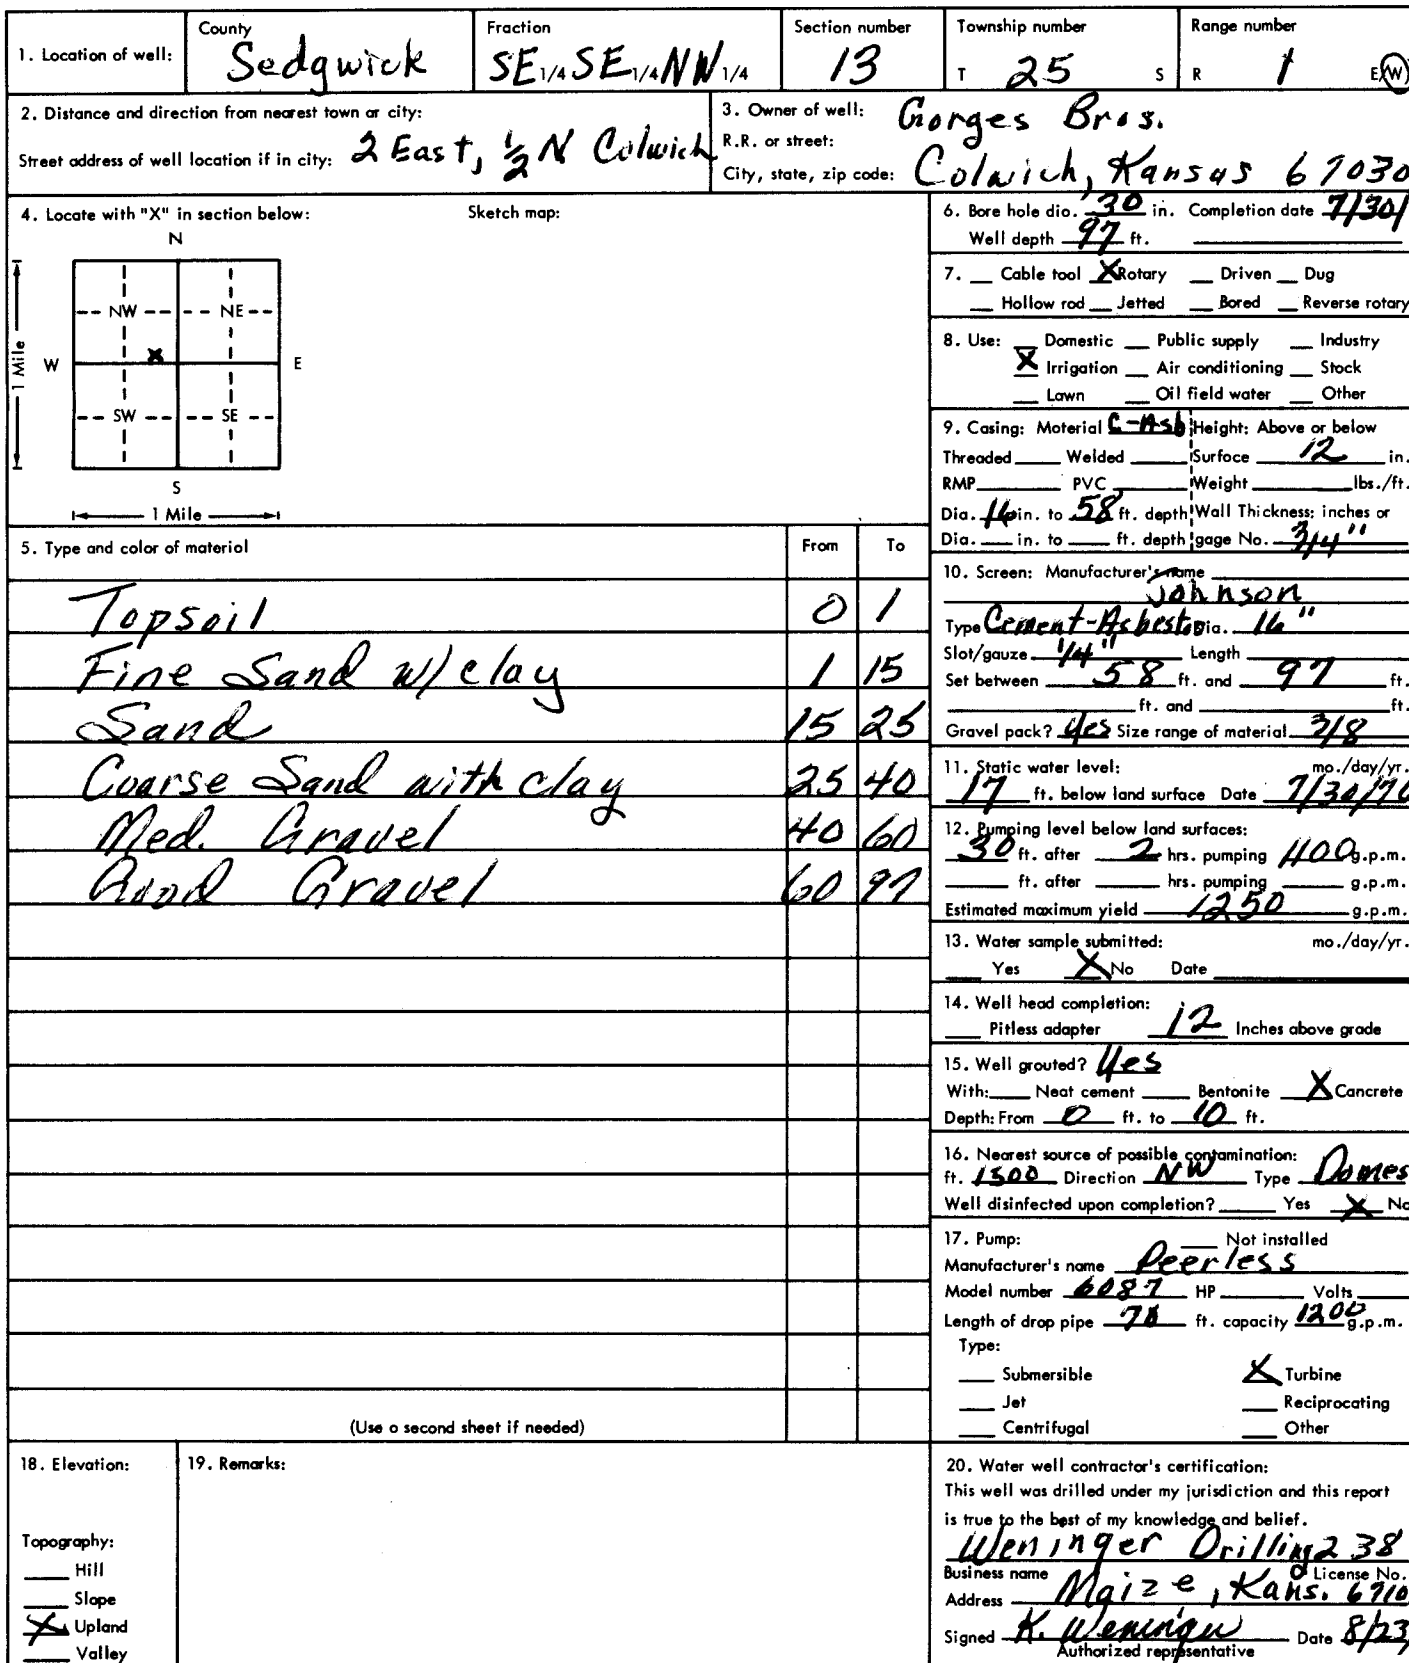 1. Location of well:
County
Sedgwick
Fraction
SE 1/4 SE 1/4 NW 1/4
Section number
13
Township number
T 25 S
Range number
R 1 E/W
2. Distance and direction from nearest town or city:
2 East, 1/2 N Colwich
Street address of well location if in city:
3. Owner of well: Gorges Bros.
R.R. or street:
City, state, zip code: Colwich, Kansas 67030
4. Locate with "X" in section below:
Sketch map:
N
NW NE
W X E
SW SE
S
1 Mile
1 Mile
5. Type and color of material From To
Topsoil 0 1
Fine Sand w/ clay 1 15
Sand 15 25
Coarse Sand with clay 25 40
Med. Gravel 40 60
Good Gravel 60 97
(Use a second sheet if needed)
6. Bore hole dia. 30 in. Completion date 7/30/
Well depth 97 ft.
7. Cable tool X Rotary Driven Dug
Hollow rod Jetted Bored Reverse rotary
8. Use: Domestic Public supply Industry
X Irrigation Air conditioning Stock
Lawn Oil field water Other
9. Casing: Material C-Asb Height: Above or below
Threaded Welded Surface 12 in.
RMP PVC Weight lbs./ft.
Dia. 16 in. to 58 ft. depth Wall Thickness: inches or
Dia. in. to ft. depth gage No. 3/4"
10. Screen: Manufacturer's name
Johnson
Type Cement-Asbestos Dia. 16"
Slot/gauze 1/4" Length
Set between 58 ft. and 97 ft.
ft. and ft.
Gravel pack? Yes Size range of material 3/8
11. Static water level: mo./day/yr.
17 ft. below land surface Date 7/30/76
12. Pumping level below land surfaces:
30 ft. after 2 hrs. pumping 1100 g.p.m.
ft. after hrs. pumping g.p.m.
Estimated maximum yield 1250 g.p.m.
13. Water sample submitted: mo./day/yr.
Yes X No Date
14. Well head completion:
Pitless adapter 12 Inches above grade
15. Well grouted? Yes
With: Neat cement Bentonite X Concrete
Depth: From 0 ft. to 10 ft.
16. Nearest source of possible contamination:
ft. 1500 Direction NW Type Domes
Well disinfected upon completion? Yes X No
17. Pump: Not installed
Manufacturer's name Peerless
Model number 6087 HP Volts
Length of drop pipe ft. capacity 1200 g.p.m.
Type:
Submersible X Turbine
Jet Reciprocating
Centrifugal Other
18. Elevation:
Topography:
Hill
Slope
X Upland
Valley
19. Remarks:
20. Water well contractor's certification:
This well was drilled under my jurisdiction and this report
is true to the best of my knowledge and belief.
Weninger Drilling 238
Business name License No.
Address Maize, Kans. 6710
Signed K. Weninger Date 8/23/
Authorized representative